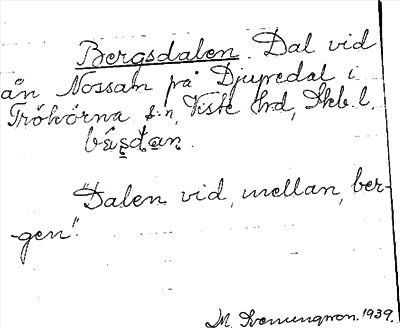 Bergsdalen. Dal vid
ån Nossan på Djupedal i
Tröhörna s:n, Viste hrd, Skb. l.
"Dalen vid, mellan, ber-
-gen".
1939.